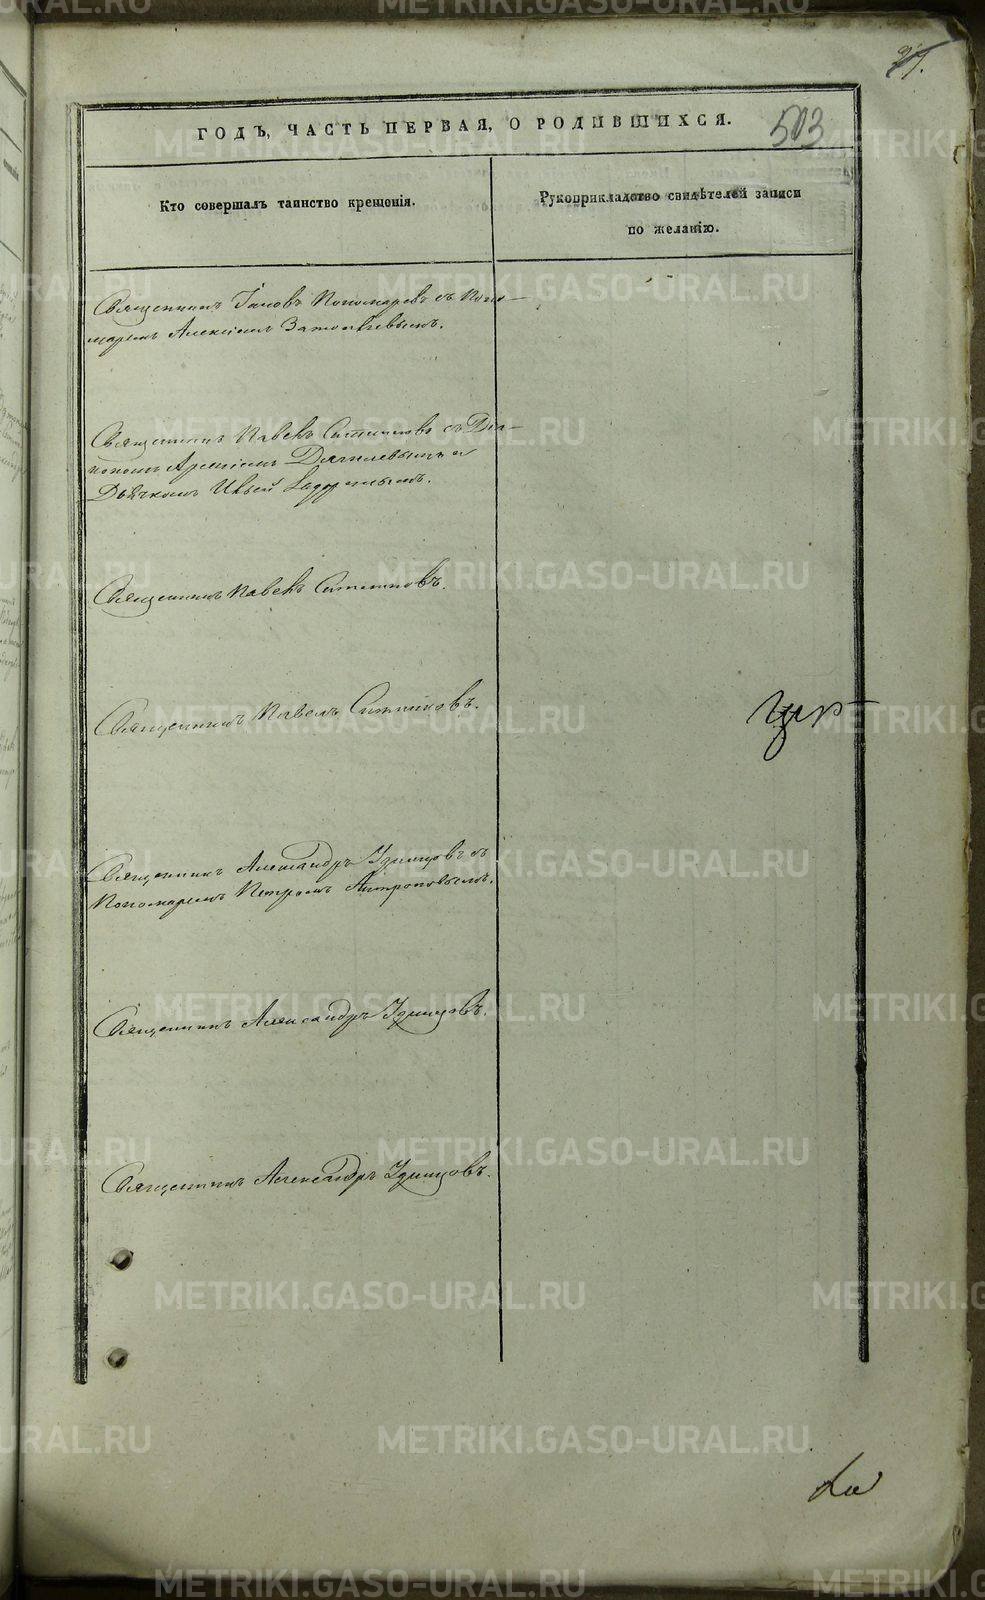 503
ГОДЪ, ЧАСТЬ ПЕРВАЯ, О РОДИВШИХСЯ.
Кто совершалъ таинство крещенія.
Рукоприкладство свидѣтелей записи
по желанію.
Священникъ Іаковъ Пономаревъ съ Поно-
маремъ Алексіемъ
Священникъ Павелъ Ситниковъ съ Діа-
кономъ Арсеніемъ Дягилевымъ и
Дьячкомъ
Священникъ Павелъ Ситниковъ.
Священникъ Павелъ Ситниковъ.
Священникъ Александръ Удинцовъ съ
Пономаремъ Петромъ Антроповымъ.
Священникъ Александръ Удинцовъ.
Священникъ Александръ Удинцовъ.
METRIKI.GASO-URAL.RU